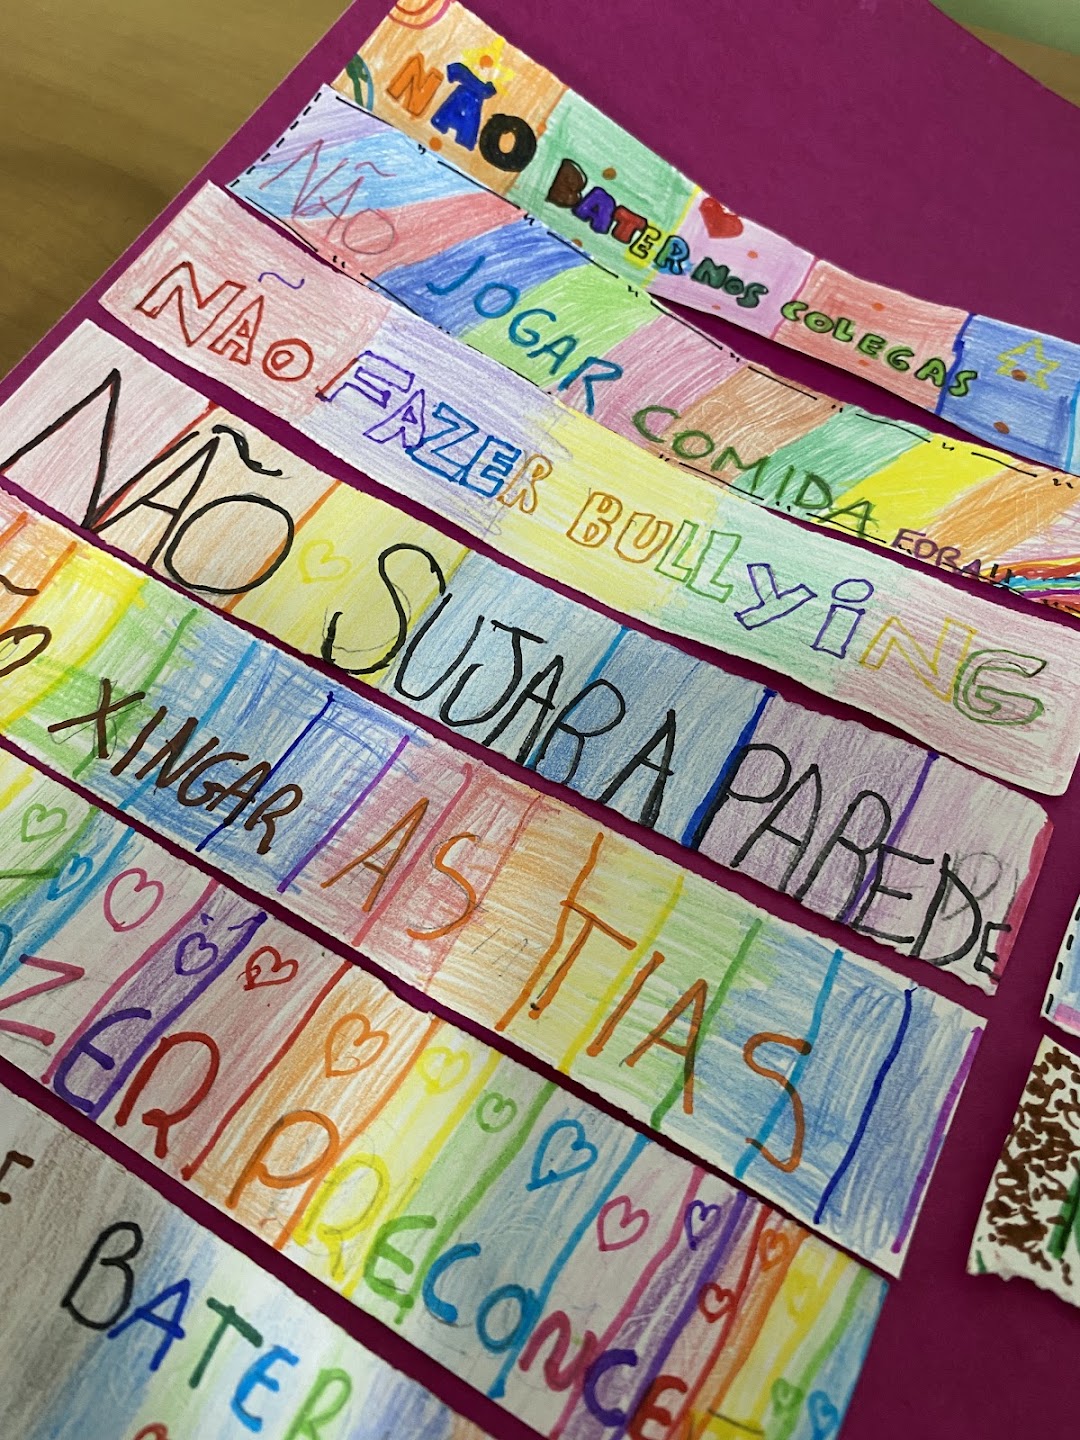 NÃO BATER NOS COLEGAS
NÃO JOGAR COMIDA FORA!!
NÃO FAZER BULLyiNG
NÃO SUJAR A PAREDE
XINGAR AS TIAS
ZER PRECONCE
BATER